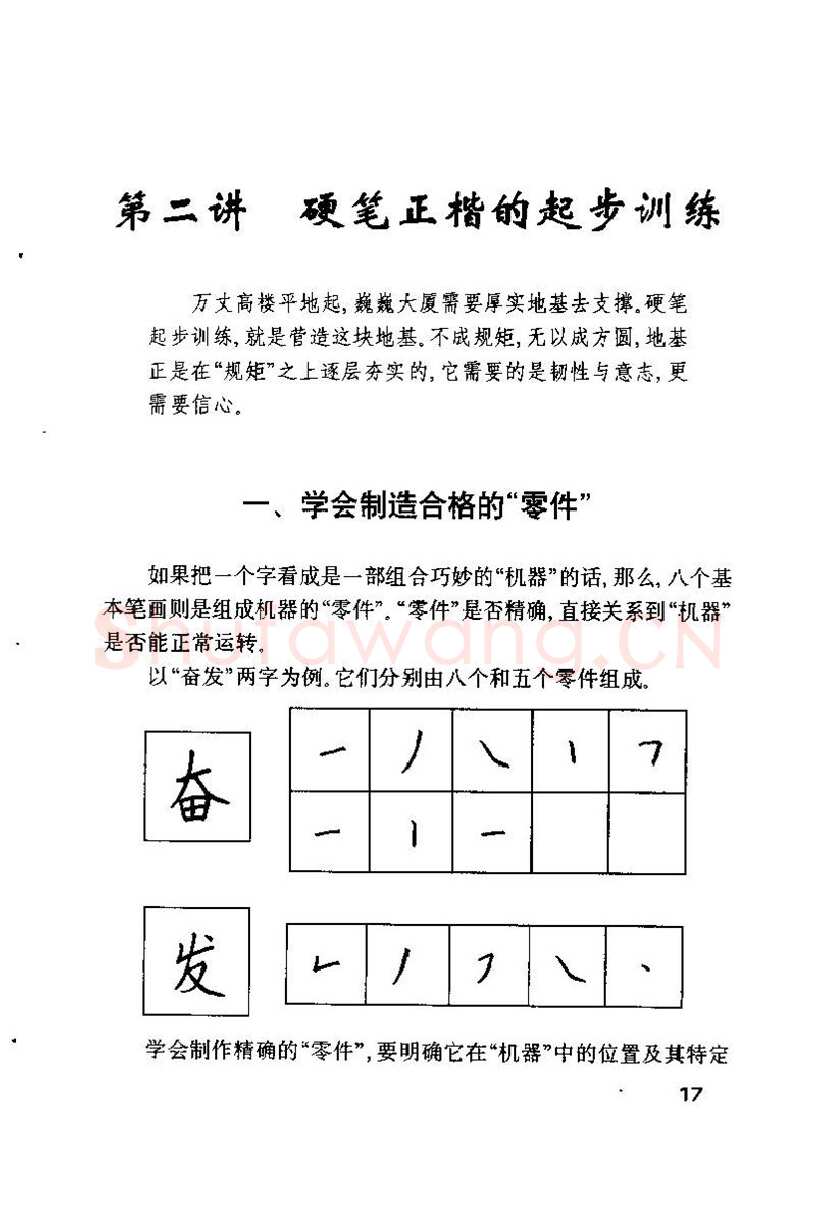 第二讲 硬笔正楷的起步训练
万丈高楼平地起,巍巍大厦需要厚实地基去支撑。硬笔
起步训练,就是营造这块地基。不成规矩,无以成方圆,地基
正是在“规矩”之上逐层夯实的,它需要的是韧性与意志,更
需要信心。
一、学会制造合格的“零件”
如果把一个字看成是一部组合巧妙的“机器”的话,那么,八个基
本笔画则是组成机器的“零件”。“零件”是否精确,直接关系到“机器”
是否能正常运转。
Shufawang.CN
以“奋发”两字为例。它们分别由八个和五个零件组成。
奋
一 丿 ㇏ 丨 ㇕
一 丨 一
发
𠄌 丿 ㇇ ㇏ 丶
学会制作精确的“零件”,要明确它在“机器”中的位置及其特定
17